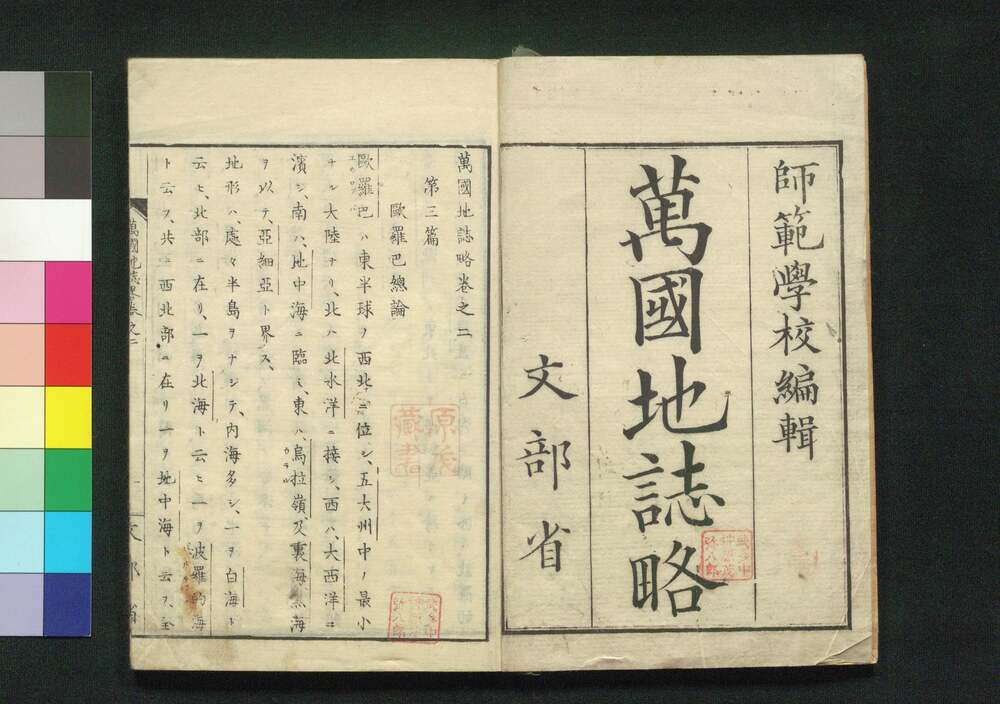 師範學校編輯
萬國地誌略
文部省
萬國地誌略卷之二
第三篇
歐羅巴總論
歐羅巴ハ東半球ヲ西北ニ位シ、五大州中ノ最小
ナル大陸ナリ、北ハ北氷洋ニ接シ、西ハ、大西洋ニ
濱シ、南ハ、地中海ニ臨ミ、東ハ、烏拉嶺、及裏海、黒海
ヲ以テ、亞細亞ト界ス、
地形ハ、處々半島ヲナシテ、内海多シ、一ヲ白海ト
云ヒ、北部ニ在リ、一ヲ北海ト云ヒ一ヲ波羅的海
ト云フ、共ニ西北部ニ在リ一ヲ地中海ト云フ、全
萬國地誌略卷之二
一
文部省